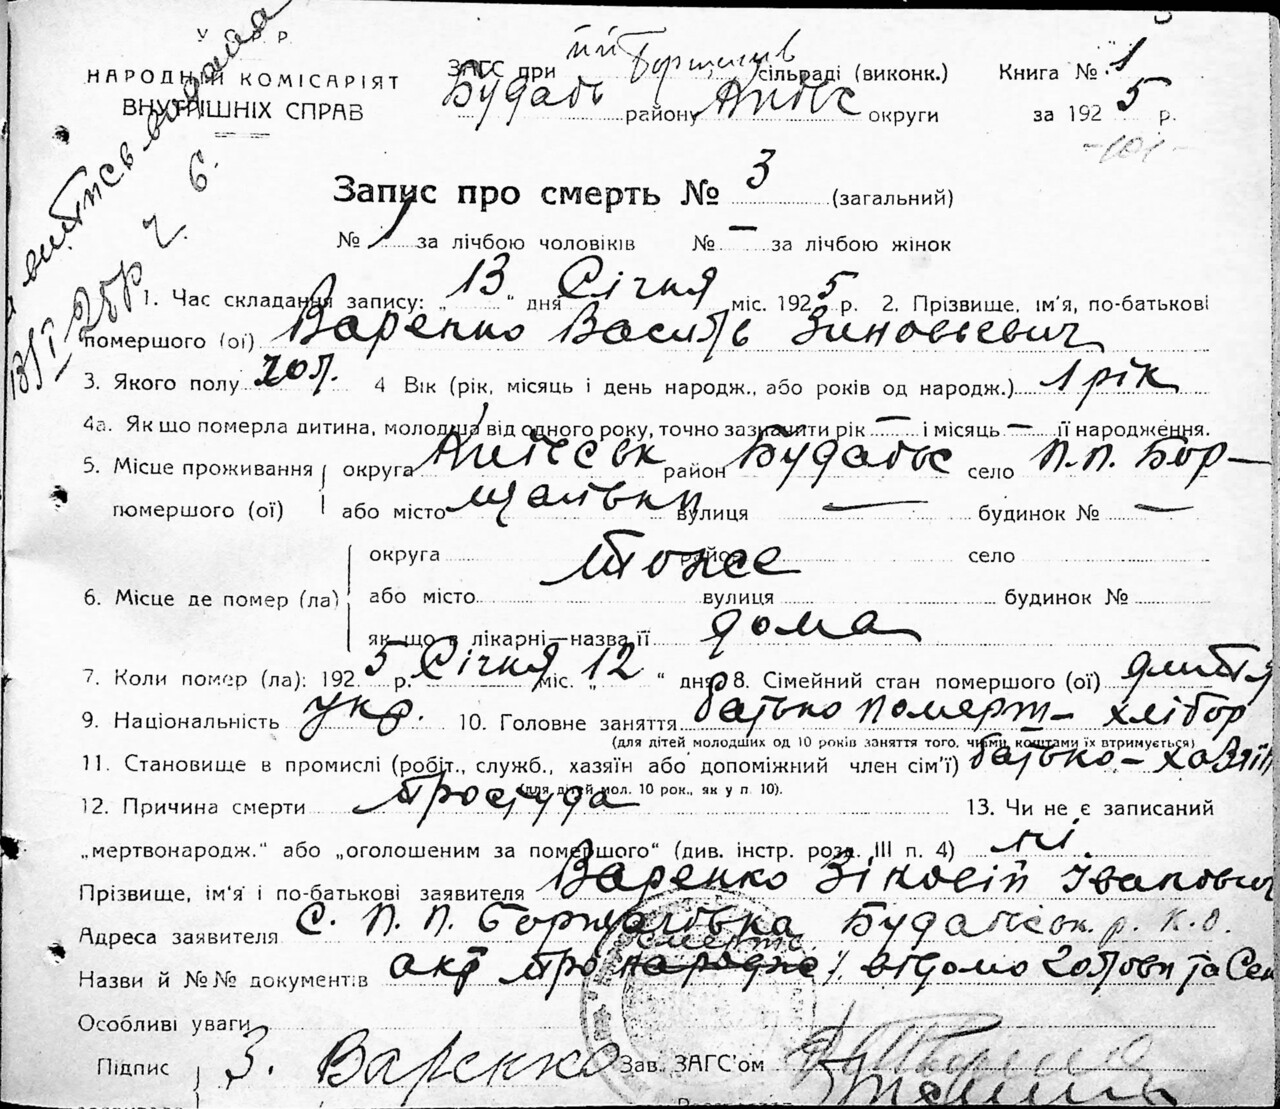 У. С. Р. Р.
НАРОДНИЙ КОМІСАРІЯТ
ВНУТРІШНІХ СПРАВ
ЗАГС при пп Борщагів сільраді (виконк.)
Будаїв району Київс округи
Книга № 1
за 1925 р.
-101-
витпись видана
13/I 25р ч. 6.
Запис про смерть № 3 (загальний)
№ 1 за лічбою чоловіків № — за лічбою жінок
1. Час складання запису: „13“ дня Січня міс. 1925 р. 2. Прізвище, ім'я, по-батькові
помершого (ої) Варенко Василь Зиновьевич
3. Якого полу чол. 4 Вік (рік, місяць і день народж., або років од народж.) 1 рік
4а. Якщо померла дитина, молодша від одного року, точно зазначити рік — і місяць — її народження.
5. Місце проживання округа Київськ район Будаївс село П.П. Бор-
помершого (ої) або місто щагівки вулиця — будинок № —
округа тоже район село
6. Місце де помер (ла) або місто вулиця будинок №
як що в лікарні—назва її дома
7. Коли помер (ла): 1925 р. Січня міс. „12“ дня 8. Сімейний стан помершого (ої) дитя
9. Національність укр. 10. Головне заняття батько померш- хлібор
(для дітей молодших од 10 років заняття того, чиїми коштами їх втримується)
11. Становище в промислі (робіт., служб., хазяїн або допоміжний член сім'ї) батько – хазяїн
(для дітей мол. 10 рок., як у п. 10).
12. Причина смерти простуда 13. Чи не є записаний
„мертвонародж.“ або „оголошеним за помершого“ (див. інстр. розд. III п. 4) ні.
Прізвище, ім'я і по-батькові заявителя Варенко Зіновій Іванович
Адреса заявителя с. П. П. Борщагівка Будаївськ. р. К. О.
смерть
Назви й №№ документів акт про народже відомо голови та Сек
Особливі уваги
Підпис З. Варенко Зав. ЗАГС'ом